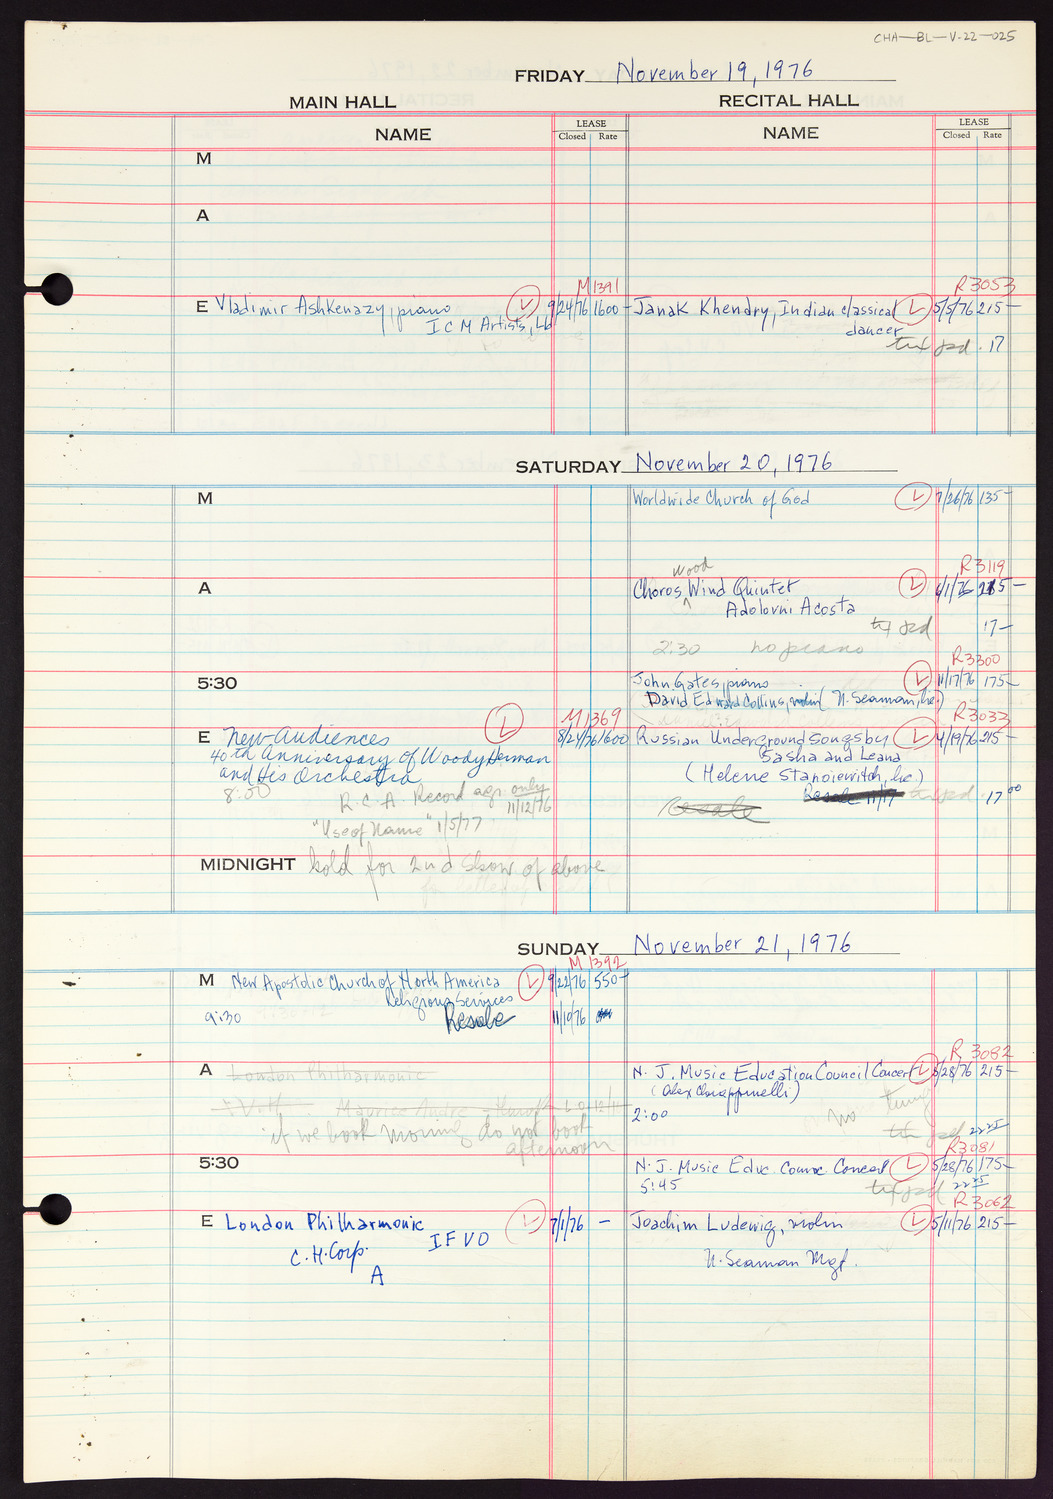 CHA-BL-V-22-025
FRIDAY November 19, 1976
MAIN HALL
RECITAL HALL
NAME
LEASE
Closed Rate
NAME
LEASE
Closed Rate
M
A
M1391
R3053
E Vladimir Ashkenazy, piano L 9/24/76 1600-
I C M Artists, Ltd
Janak Khendry, Indian classical L 5/5/76 215-
dancer
txf pd. 17
SATURDAY November 20, 1976
M
Worldwide Church of God L 7/26/76 135-
R3119
A
wood
Choros ^ Wind Quintet L 6/1/76 215-
Adolovni Acosta
txf pd 17-
2:30 no piano
R3300
5:30
John Gates, piano L 11/17/76 175-
David Edward Collins, violin (N. Seaman, Inc.)
M1369
R3033
E New Audiences L 8/24/76 1600
40th Anniversary of Woody Herman
and His Orchestra
8:00
R.C.A. Record agr. only
11/12/76
"Use of Name" 1/5/77
Russian Underground songs by L 4/19/76 215-
Sasha and Leana
(Helene Stanoiewitch, Inc.)
Resale 11/17 txf pd. 17 00
Resale
MIDNIGHT hold for 2nd show of above
SUNDAY November 21, 1976
M 1392
M New Apostolic Church of North America L 9/22/76 550-
Religious Services
9:30 Resale 11/10/76
R 3082
A London Philharmonic
Maurice Andre
if we book morning do not book
afternoon
N. J. Music Education Council Concert L 5/28/76 215-
(Alex Chiappinelli)
2:00
no tuning
txf pd 22 25
R3081
5:30
N. J. Music Educ. Counc Concert L 5/28/76 175-
5:45
txf pd 22 25
R3062
E London Philharmonic L 7/1/76 -
C.H. Corp. I F V O
A
Joachim Ludewig, violin L 5/11/76 215-
N. Seaman Mgt.